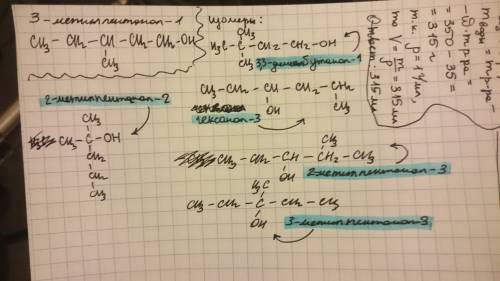 3-метилпентанол-1
CH₃-CH₂-CH-CH₂-CH₂-OH
CH₃
Изомеры:
CH₃
H₃C-C-CH₂-CH₂-OH
CH₃
3,3-диметилбутанол-1
CH₃-CH₂-CH-CH₂-CH₂
OH CH₃
гексанол-3
2-метилпентанол-2
CH₃
CH₃-C-OH
CH₂
CH₂
CH₃
CH₃
CH₃-CH₂-CH-CH₂-CH₃
OH
2-метилпентанол-3
H₃C
CH₃-CH₂-C-CH₂-CH₃
OH
3-метилпентанол-3
m воды = m р-ра -
= 350 - 35 =
= 315 г
т.к. ρ = 1 г/мл,
то V = m/ρ = 315 мл
Ответ: 315 мл